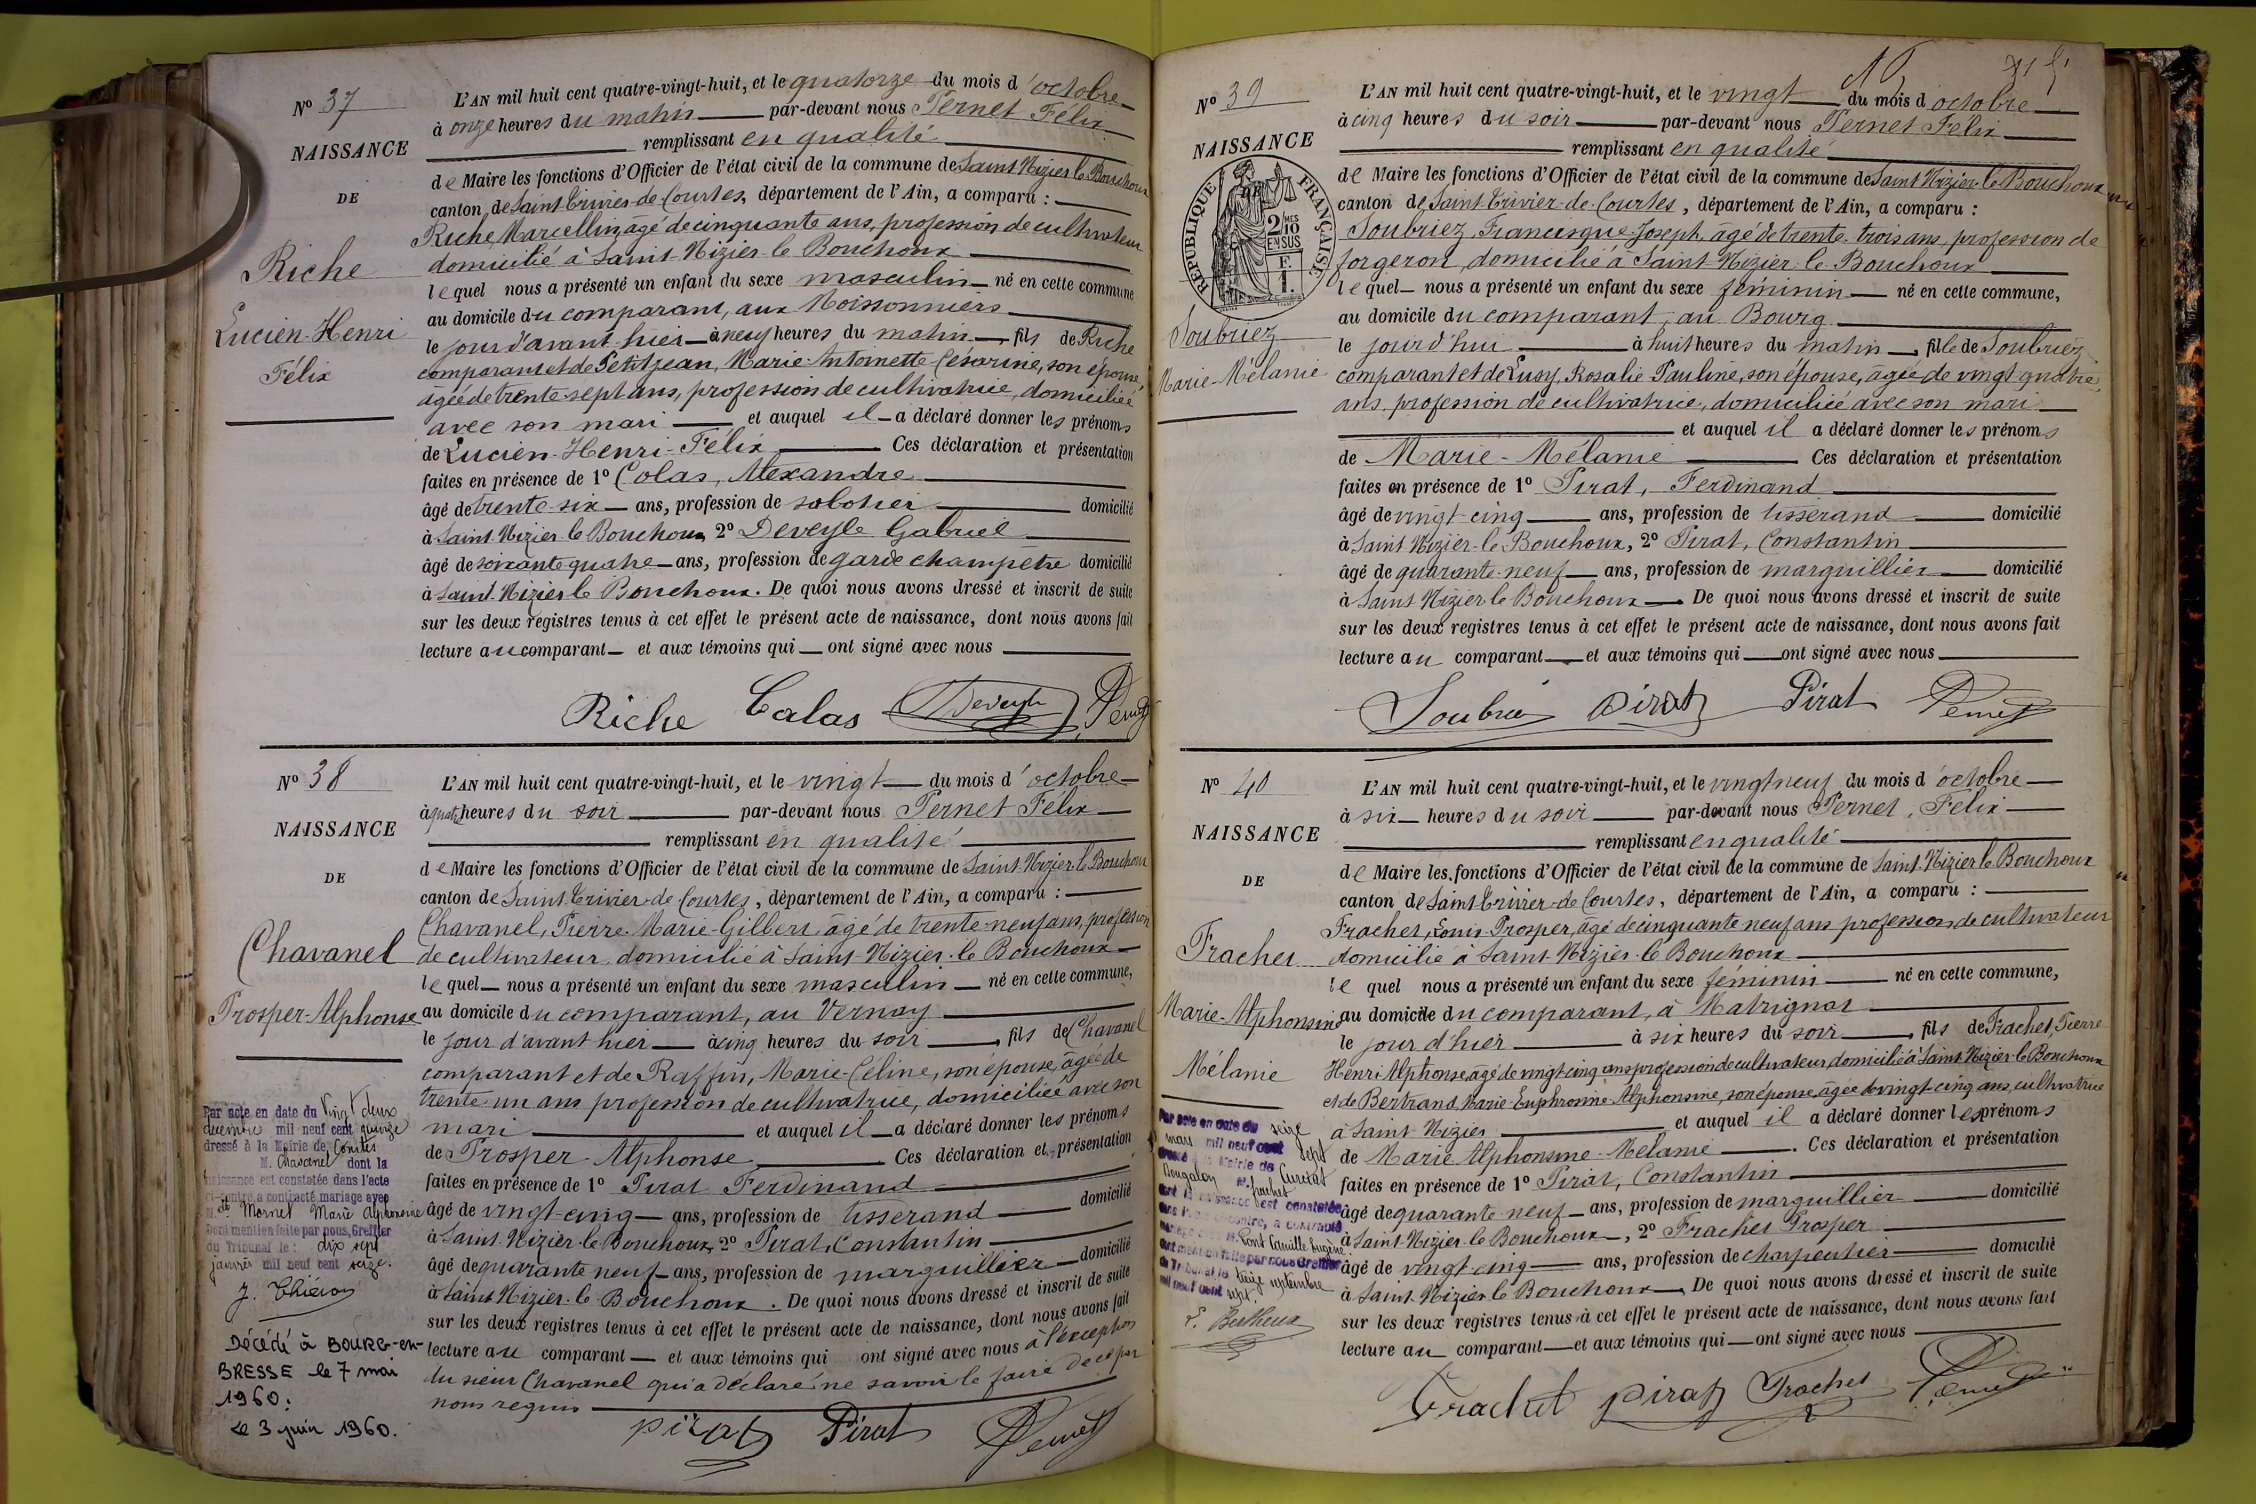 N° 37
NAISSANCE
DE
Riche
Lucien-Henri
Félix
L'AN mil huit cent quatre-vingt-huit, et le quatorze du mois d'octobre
à onze heures du matin par-devant nous Pernet Félix
remplissant en qualité
de Maire les fonctions d'Officier de l'état civil de la commune de Saint-Nizier-le-Bouchoux
canton de Saint-Trivier-de-Courtes, département de l'Ain, a comparu :
Riche Marcellin, âgé de cinquante ans, profession de cultivateur
domicilié à Saint-Nizier-le-Bouchoux
lequel nous a présenté un enfant du sexe masculin né en cette commune
au domicile du comparant, aux Moissonniers
le jour d'avant-hier à neuf heures du matin, fils de Riche
comparant et de Petitjean, Marie-Antoinette-Césarine, son épouse,
âgée de trente-sept ans, profession de cultivatrice, domiciliée
avec son mari et auquel il a déclaré donner les prénoms
de Lucien-Henri-Félix Ces déclaration et présentation
faites en présence de 1° Colas, Alexandre
âgé de trente-six ans, profession de sabotier domicilié
à Saint-Nizier-le-Bouchoux, 2° Deveyle Gabriel
âgé de soixante quatre ans, profession de garde champêtre domicilié
à Saint-Nizier-le-Bouchoux. De quoi nous avons dressé et inscrit de suite
sur les deux registres tenus à cet effet le présent acte de naissance, dont nous avons fait
lecture au comparant et aux témoins qui ont signé avec nous
Riche Calas Deveyle Pernet
N° 38
NAISSANCE
DE
Chavanel
Prosper-Alphonse
L'AN mil huit cent quatre-vingt-huit, et le vingt du mois d'octobre
à quatre heures du soir par-devant nous Pernet Félix
remplissant en qualité
de Maire les fonctions d'Officier de l'état civil de la commune de Saint-Nizier-le-Bouchoux
canton de Saint-Trivier-de-Courtes, département de l'Ain, a comparu :
Chavanel, Pierre-Marie-Gilbert, âgé de trente-neuf ans, profession
de cultivateur, domicilié à Saint-Nizier-le-Bouchoux
lequel nous a présenté un enfant du sexe masculin né en cette commune,
au domicile du comparant, au Vernay
le jour d'avant hier à cinq heures du soir, fils de Chavanel
comparant et de Raffin, Marie-Céline, son épouse, âgée de
trente-un ans profession de cultivatrice, domiciliée avec son
mari et auquel il a déclaré donner les prénoms
de Prosper-Alphonse Ces déclaration et présentation
faites en présence de 1° Pirat Ferdinand
âgé de vingt-cinq ans, profession de tisserand domicilié
à Saint-Nizier-le-Bouchoux 2° Pirat, Constantin
âgé de quarante neuf ans, profession de marguillier domicilié
à Saint-Nizier-le-Bouchoux. De quoi nous avons dressé et inscrit de suite
sur les deux registres tenus à cet effet le présent acte de naissance, dont nous avons fait
lecture au comparant et aux témoins qui ont signé avec nous à l'exception
du sieur Chavanel qui a déclaré ne savoir le faire de ce par
nous requis
Pirat Pirat Pernet
Par acte en date du Vingt deux
décembre mil neuf cent quinze
dressé à la Mairie de
M. Chavanel dont la
naissance est constatée dans l'acte
ci-contre, a contracté mariage avec
Mornet Marie Alphonsine
Dont mention faite par nous, Greffier
du Tribunal le : dix sept
janvier mil neuf cent seize.
Décédé à BOURG-en-
BRESSE le 7 mai
1960.
Le 3 juin 1960.
N° 39
NAISSANCE
RÉPUBLIQUE FRANÇAISE
2/10 MES
EN SUS
F.
1.
Soubriez
Marie-Mélanie
L'AN mil huit cent quatre-vingt-huit, et le vingt du mois d'octobre
à cinq heures du soir par-devant nous Pernet Félix
remplissant en qualité
de Maire les fonctions d'Officier de l'état civil de la commune de Saint-Nizier-le-Bouchoux
canton de Saint-Trivier-de-Courtes, département de l'Ain, a comparu :
Soubriez, Francisque-Joseph, âgé de trente-trois ans, profession de
forgeron, domicilié à Saint-Nizier-le-Bouchoux
lequel nous a présenté un enfant du sexe féminin né en cette commune,
au domicile du comparant, au Bourg
le jourd'hui à huit heures du matin, fille de Soubriez
comparant et de Lusy, Rosalie-Pauline, son épouse, âgée de vingt-quatre
ans, profession de cultivatrice, domiciliée avec son mari
et auquel il a déclaré donner les prénoms
de Marie-Mélanie Ces déclaration et présentation
faites en présence de 1° Pirat, Ferdinand
âgé de vingt-cinq ans, profession de tisserand domicilié
à Saint-Nizier-le-Bouchoux, 2° Pirat, Constantin
âgé de quarante-neuf ans, profession de marguillier domicilié
à Saint-Nizier-le-Bouchoux. De quoi nous avons dressé et inscrit de suite
sur les deux registres tenus à cet effet le présent acte de naissance, dont nous avons fait
lecture au comparant et aux témoins qui ont signé avec nous
Pirat Pirat Pernet
N° 40
NAISSANCE
DE
Frachet
Marie-Alphonsine
Mélanie
L'AN mil huit cent quatre-vingt-huit, et le vingt neuf du mois d'octobre
à six heures du soir par-devant nous Pernet, Félix
remplissant en qualité
de Maire les fonctions d'Officier de l'état civil de la commune de Saint-Nizier-le-Bouchoux
canton de Saint-Trivier-de-Courtes, département de l'Ain, a comparu :
Frachet, Louis-Prosper, âgé de cinquante neuf ans profession de cultivateur
domicilié à Saint-Nizier-le-Bouchoux
le quel nous a présenté un enfant du sexe féminin né en cette commune,
au domicile du comparant, à Matrignat
le jour d'hier à six heures du soir, fils de Frachet, Pierre
Henri Alphonse, âgé de vingt cinq ans profession de cultivateur, domicilié à Saint-Nizier-le-Bouchoux
et de Bertrand, Marie-Euphrosine-Alphonsine, son épouse, âgée de vingt cinq ans, cultivatrice
à Saint-Nizier et auquel il a déclaré donner les prénoms
de Marie Alphonsine-Mélanie. Ces déclaration et présentation
faites en présence de 1° Pirat, Constantin
âgé de quarante-neuf ans, profession de marguillier domicilié
à Saint-Nizier-le-Bouchoux, 2° Frachet Prosper
âgé de vingt-cinq ans, profession de charpentier domicilié
à Saint-Nizier-le-Bouchoux, De quoi nous avons dressé et inscrit de suite
sur les deux registres tenus à cet effet le présent acte de naissance, dont nous avons fait
lecture au comparant et aux témoins qui ont signé avec nous
Frachet Pirat Frachet Pernet
Par acte en date du seize
mars mil neuf cent sept
dressé à la Mairie de Curciat
Dongalon M. Frachet
dont la naissance est constatée
dans l'acte ci-contre, a contracté
mariage avec M. Pont Camille Eugène
dont mention faite par nous Greffier
du Tribunal le treize septembre
mil neuf cent sept.